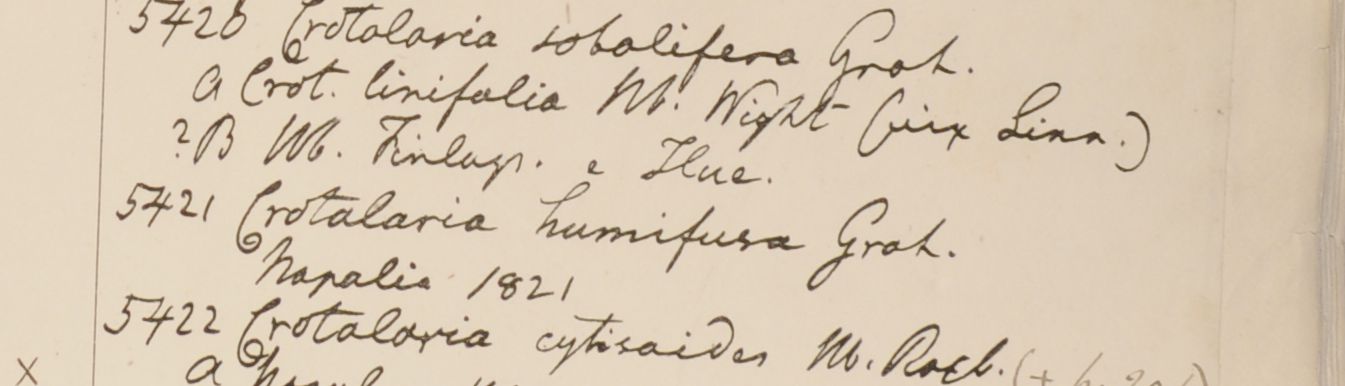 5420 Crotalaria sobolifera Grah.
A Crot. linifolia Hb. Wight (vix Linn.)
?B Hb. Finlays. e Hue.
5421 Crotalaria humifusa Grah.
Napalia 1821
5422 Crotalaria cytisoides Hb. Roxb. (+
X A